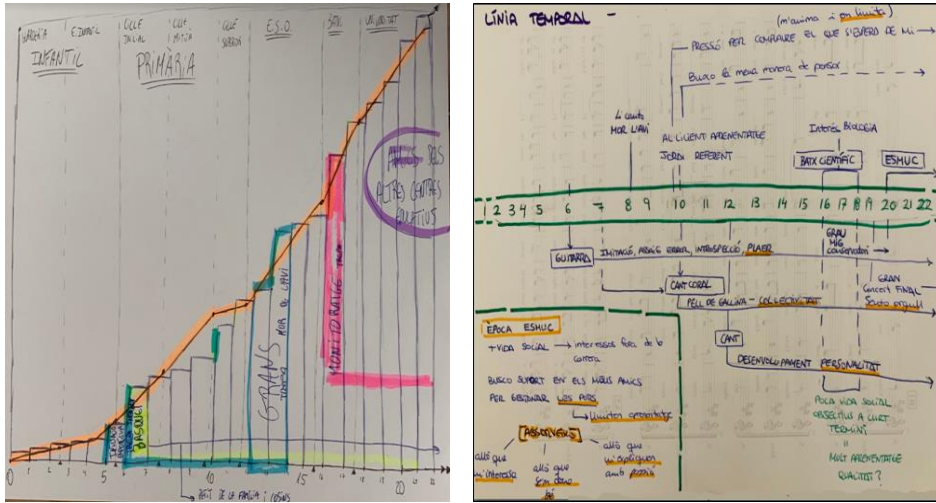 INFANTIL
E. INFANTIL
PRIMÀRIA
CICLE
INICIAL
CICLE
MITJÀ
CICLE
E.S.O.
UNIVERSITAT
DELS
ALTRES CENTRES
EDUCATIUS
MONITORATGE
GRANS
MOR L'AVI
BÀSQUET
0
5
10
20
DE LA FAMÍLIA I COSINS
LÍNIA TEMPORAL -
(m'anima i em limita)
PRESSIÓ PER COMPLAURE EL QUE S'ESPERA DE MI
Busco la meva manera de pensar
MOR L'AVI
AL·LICIENT APRENENTATGE
JORDI REFERENT
Interès Biologia
BATX CIENTÍFIC
ESMUC
1 2 3 4 5 6 7 8 9 10 11 12 13 14 15 16 17 18 19 20 21 22
GUITARRA
IMITACIÓ, ASSAIG ERROR, INTROSPECCIÓ, PLAER
GRAU
MIG
conservatori
CANT CORAL
PELL DE GALLINA - COL·LECTIVITAT
GRAN
Concert FINAL
Sento orgull
CANT
DESENVOLUPAMENT PERSONALITAT
ÈPOCA ESMUC
+ VIDA SOCIAL → interessos fora de la
carrera
BUSCO SUPORT EN ELS MEUS AMICS
PER GESTIONAR LES PORS
limiten aprenentatge
ABSORVEIXO
allò que
m'interessa
allò que
se'm dona
bé
allò que
m'expliquen
amb passió
POCA VIDA SOCIAL
OBJECTIUS A CURT
TERMINI
=
MOLT APRENENTATGE
QUALITAT?